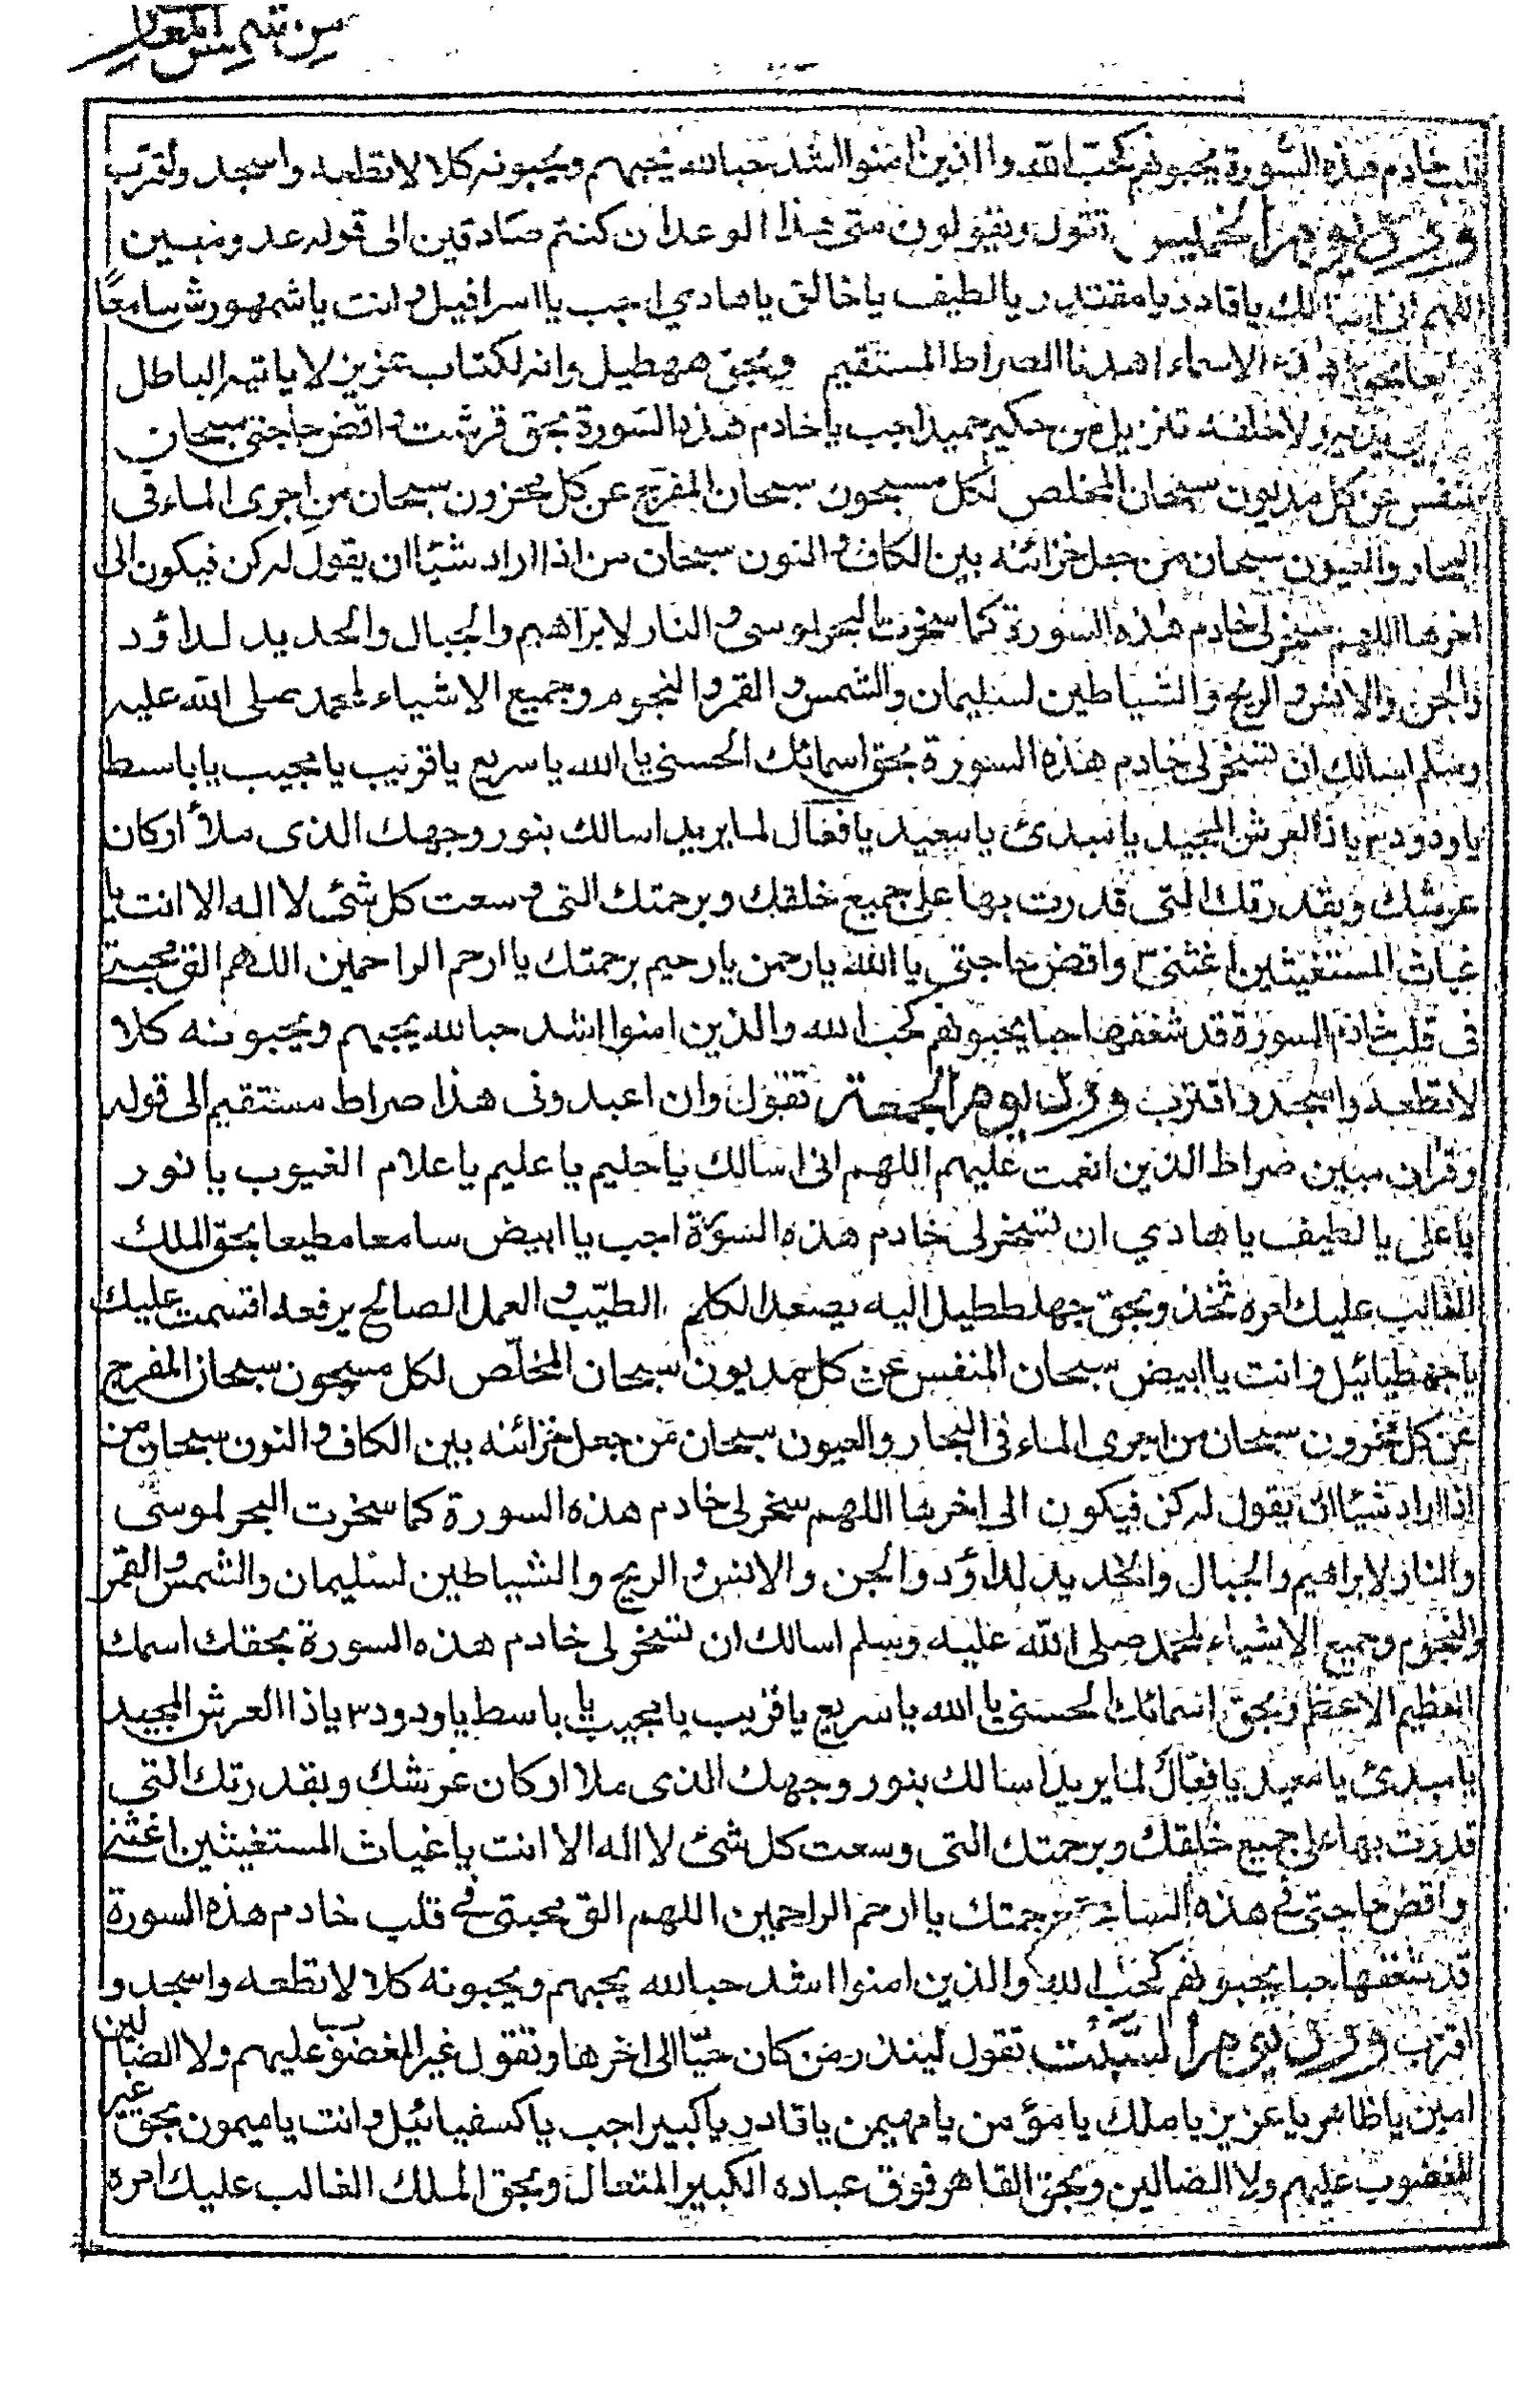 من شمس المعارف
قلب خادم هذه السورة يحبونهم كحب الله والذين امنوا اشد حبا لله يحبهم ويحبونه كلا لا تطعه واسجد واقترب
وِرْدُ يوم الخميس تقول ويقولون متى هذا الوعد ان كنتم صادقين الى قوله عدو مبين
اللهم انى اسالك يا قادر يا مقتدر يا لطيف يا خالق يا هادي اجب يا اسرافيل وانت يا شمهورش سامعًا
الاسماء اهدنا الصراط المستقيم وبحق مهطيل وانه لكتاب عزيز لا ياتيه الباطل
يديه ولا خلفه تنزيل من حكيم حميد اجب يا خادم هذه السورة بحق قرشت اقض حاجتى سبحان
المنفس عن كل مديون سبحان المخلص لكل مسجون سبحان المفرج عن كل محزون سبحان من اجرى الماء فى
البحار والعيون سبحان من جعل خزائنه بين الكاف والنون سبحان من اذا اراد شيئا ان يقول له كن فيكون الى
اخرها اللهم سخر لى خادم هذه السورة كما سخرت البحر لموسى والنار لابراهيم والجبال والحديد لداؤد
والجن والانس والريح والشياطين لسليمان والشمس والقمر والنجوم وجميع الاشياء لمحمد صلى الله عليه
وسلم اسالك ان تسخر لى خادم هذه السورة بحق اسمائك الحسنى يا الله يا سريع يا قريب يا مجيب يا باسط
يا ودود ٣ يا ذا العرش المجيد يا مبدئ يا معيد يا فعال لما يريد اسالك بنور وجهك الذى ملأ اركان
عرشك وبقدرتك التى قدرت بها على جميع خلقك وبرحمتك التى وسعت كل شئ لا اله الا انت يا
غياث المستغيثين اغثنى ٣ واقض حاجتى يا الله يا رحمن يا رحيم برحمتك يا ارحم الراحمين اللهم الق محبتى
فى قلب خادم السورة قد شغفها حبا يحبونهم كحب الله والذين امنوا اشد حبا لله يحبهم ويحبونه كلا
لا تطعه واسجد واقترب وِرْدُ يوم الجمعة تقول وان اعبدونى هذا صراط مستقيم الى قوله
وقران مبين صراط الذين انعمت عليهم اللهم انى اسالك يا حليم يا عليم يا علام الغيوب يا نور
يا على يا لطيف يا هادي ان تسخر لى خادم هذه السورة اجب يا ابيض سامعا مطيعا بحق الملك
الغالب عليك امره ثخذ وبحق جهلططيل اليه يصعد الكلم الطيّب والعمل الصالح يرفعه اقسمت عليك
يا جهطيائيل وانت يا ابيض سبحان المنفس عن كل مديون سبحان المخلّص لكل مسجون سبحان المفرج
عن كل محزون سبحان من اجرى الماء فى البحار والعيون سبحان من جعل خزائنه بين الكاف والنون سبحان من
اذا اراد شيئا ان يقول له كن فيكون الى اخرها اللهم سخر لى خادم هذه السورة كما سخرت البحر لموسى
والنار لابراهيم والجبال والحديد لداؤد والجن والانس والريح والشياطين لسليمان والشمس والقمر
والنجوم وجميع الاشياء لمحمد صلى الله عليه وسلم اسالك ان تسخر لى خادم هذه السورة بحقك اسمك
العظيم الاعظم وبحق اسمائك الحسنى يا الله يا سريع يا قريب يا مجيب يا باسط يا ودود ٣ يا ذا العرش المجيد
يا مبدئ يا معيد يا فعّال لما يريد اسالك بنور وجهك الذى ملا اركان عرشك وبقدرتك التى
قدرت بها على جميع خلقك وبرحمتك التى وسعت كل شئ لا اله الا انت يا غياث المستغيثين اغثنى
واقض حاجتى فى هذه الساعة برحمتك يا ارحم الراحمين اللهم الق محبتى فى قلب خادم هذه السورة
قد شغفها حبا يحبونهم كحب الله والذين امنوا اشد حبا لله يحبهم ويحبونه كلا لا تطعه واسجد و
اقترب وِرْدُ يوم السَّبْت تقول لينذر من كان حيّا الى اخرها وتقول غير المغضوب عليهم ولا الضالين
امين يا ظاهر يا عزيز يا ملك يا مؤمن يا مهيمن يا قادر يا كبير اجب يا كسفيائيل وانت يا ميمون بحق غير
المغضوب عليهم ولا الضالين وبحق القاهر فوق عباده الكبير المتعال وبحق الملك الغالب عليك امره